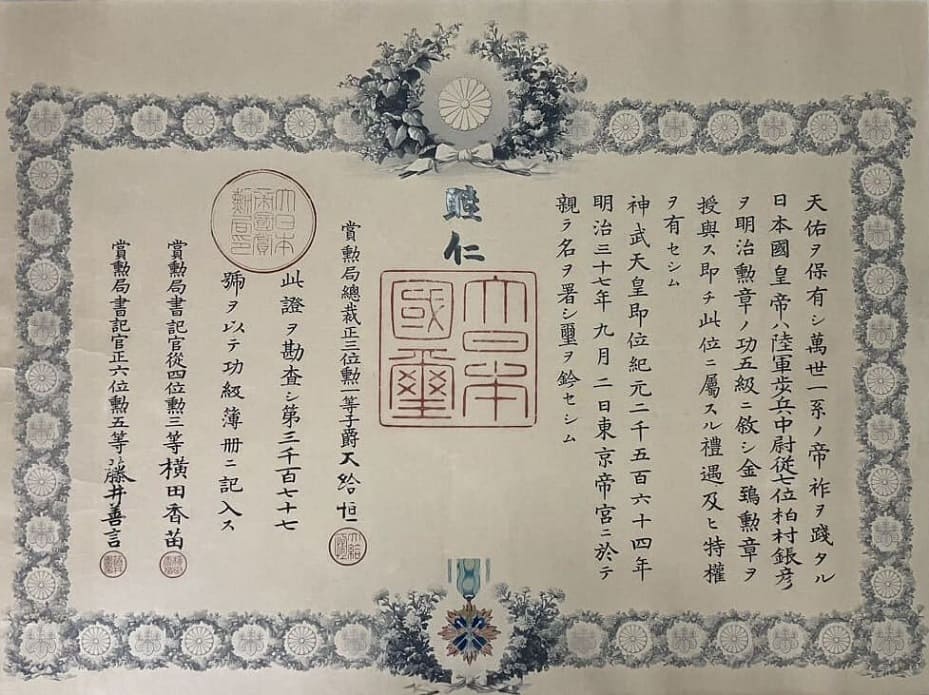 天佑ヲ保有シ萬世一系ノ帝祚ヲ踐タル
日本國皇帝ハ陸軍歩兵中尉從七位柏村鋹彦
ヲ明治勲章ノ功五級ニ敘シ金鵄勲章ヲ
授與ス即チ此位ニ屬スル禮遇及ヒ特權
ヲ有セシム
神武天皇即位紀元二千五百六十四年
明治三十七年九月二日東京帝宮ニ於テ
親ラ名ヲ署シ璽ヲ鈐セシム
睦仁
大日本
國璽
賞勲局總裁正三位勲一等子爵大給恒
此證ヲ勘査シ第三千百七十七
號ヲ以テ功級簿册ニ記入ス
大日本
帝國賞
勲局印
賞勲局書記官從四位勲三等横田香苗
賞勲局書記官正六位勲五等藤井善言